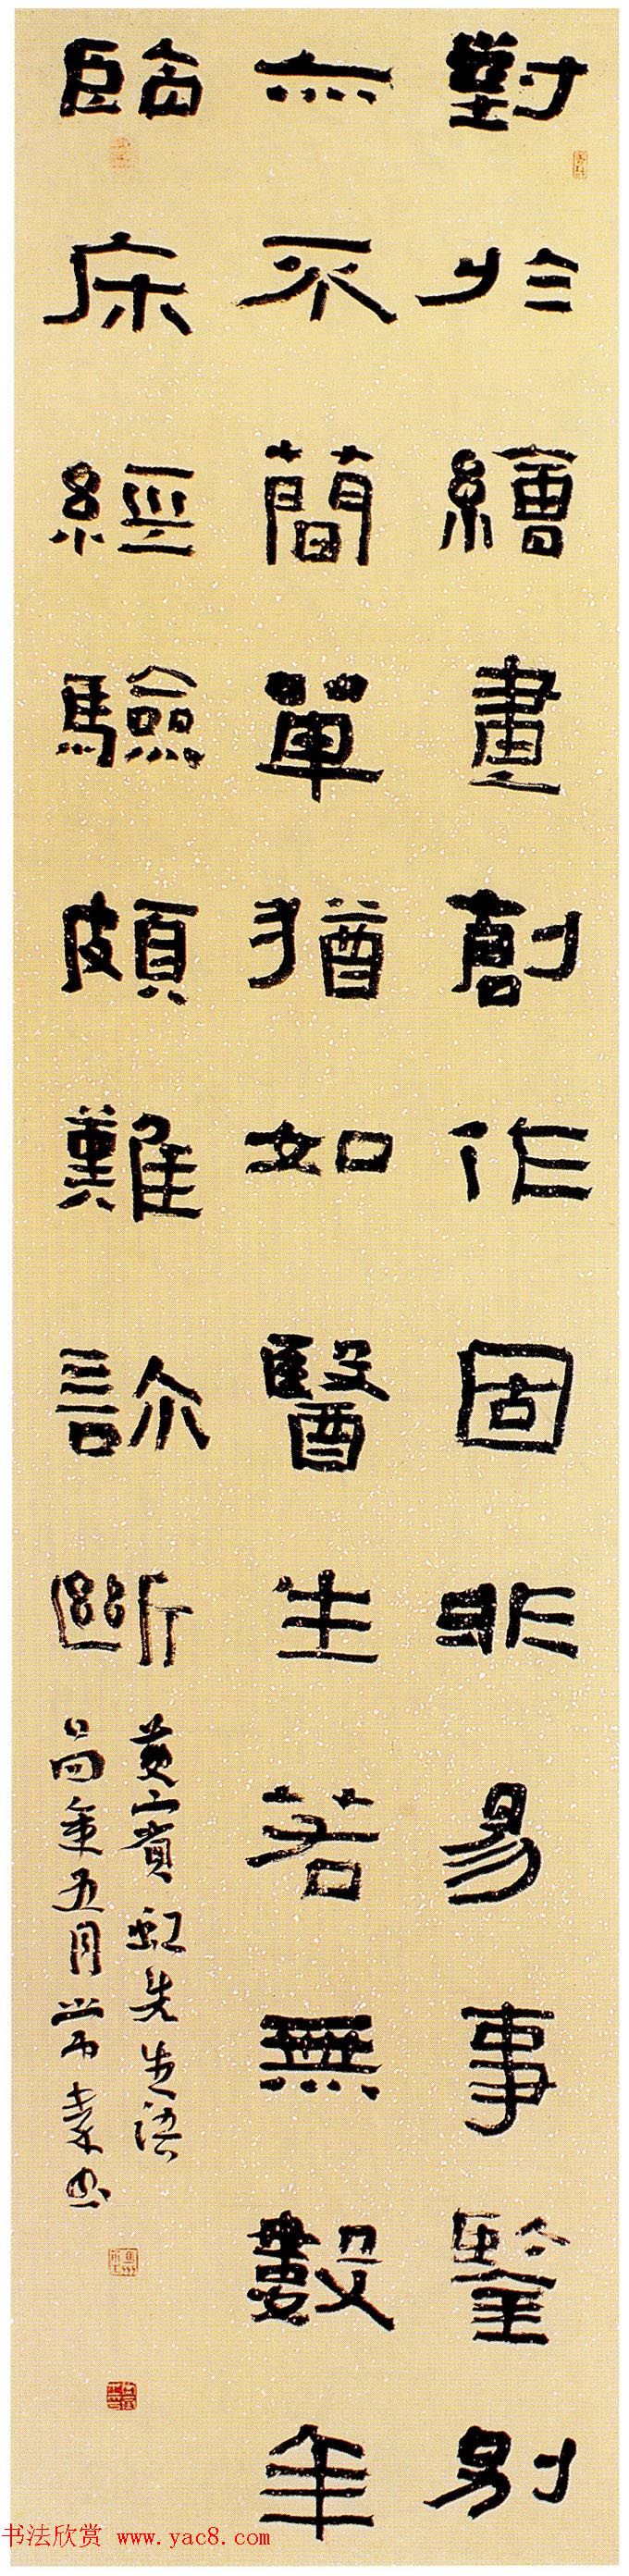 對於繪畫創作固非易事鑒別
亦不簡單猶如醫生若無數年
臨床經驗頗難診斷
黃賓虹先生語
年五月
书法欣赏 www.yac8.com